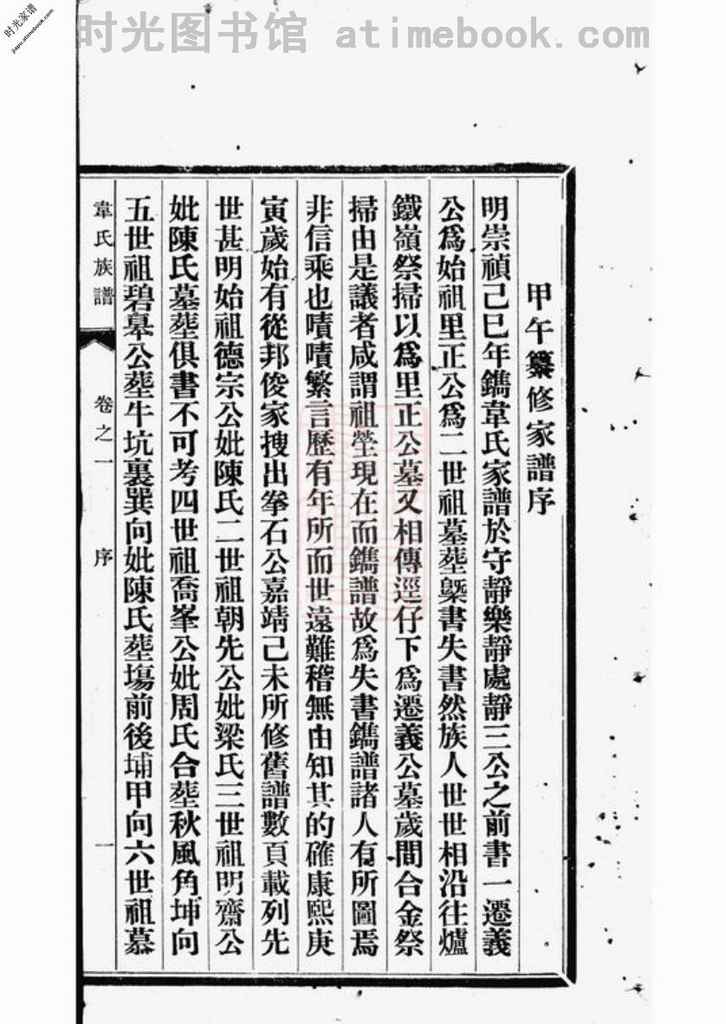 时光家谱
jiapu.atimebook.com
时光图书馆 atimebook.com
甲午纂修家譜序
明崇禎己巳年鐫韋氏家譜於守靜樂靜處靜三公之前書一遷義
公爲始祖里正公爲二世祖墓塟槩書失書然族人世世相沿往爐
鐵嶺祭掃以爲里正公墓又相傳逕仔下爲遷義公墓歲間合金祭
掃由是議者咸謂祖塋現在而鐫譜故爲失書鐫譜諸人有所圖焉
非信乘也嘖嘖繁言歷有年所而世遠難稽無由知其的確康熙庚
寅歲始有從邦俊家搜出拳石公嘉靖己未所修舊譜數頁載列先
世甚明始祖德宗公妣陳氏二世祖朝先公妣梁氏三世祖明齋公
妣陳氏墓塟俱書不可考四世祖喬峯公妣周氏合塟秋風角坤向
五世祖碧皋公塟牛坑裏巽向妣陳氏塟塲前後埔甲向六世祖慕
韋氏族譜
卷之一
序
一